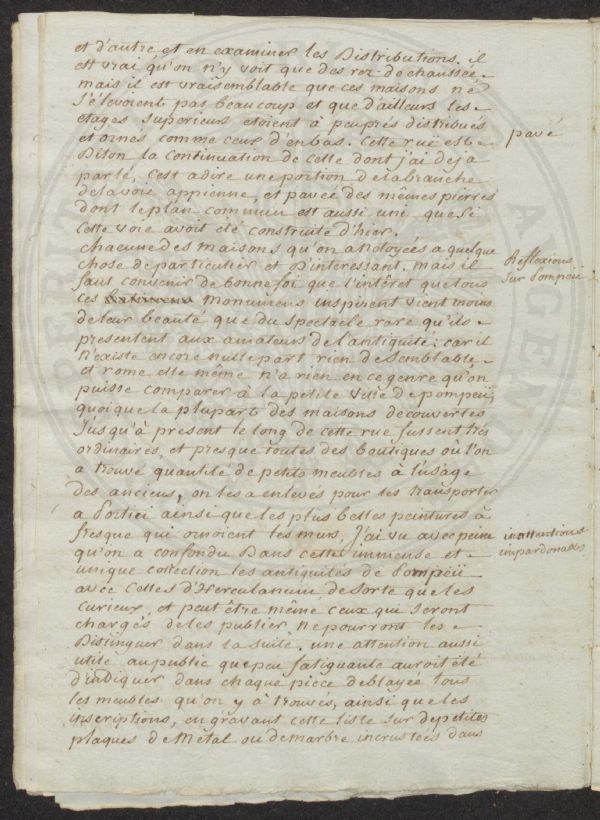 et d'autre et en examiner les Distributions. il
est vrai qu'on n'y voit que des rez-de chaussée,
mais il est vraisemblable que ces maisons ne
s'elevoient pas beaucoup et que d'ailleurs les
etages superieurs etoient à peuprés distribués
et ornés comme ceux d'enbas. Cette rue est
Diton la Continuation de Celle dont j'ai deja
pavé
parlé, C'est adire une portion de labranche
delavoie appienne, et pavée des mêmes pierres
dont leplan commun est aussi uni que si
Cette voie avoit été construite d'hier.
Chacune des maisons qu'on a nétoyées a quelque
chose de particulier et d'interessant. mais il
Reflexions
sur Pompeii
faut convenir de bonne foi que l'intérêt que tous
ces monumens inspirent vient moins
de leur beauté que du spectacle rare qu'ils
presentent aux amateurs de l'antiquité; car il
n'existe encore nulle part rien de semblable
et rome elle même n'a rien en ce genre qu'on
puisse comparer à la petite ville de pompeii;
quoique la plupart des maisons decouvertes
jusqu'à present le long de cette rue fussent très
ordinaires, et presque toutes des boutiques où l'on
a trouvé quantité de petits meubles à l'usage
des anciens, on les a enlevés pour les transporter
a Portici ainsi que les plus belles peintures à
fresque qui ornoient les murs. J'ai vu avec peine
inattentions
impardonables
qu'on a confondu Dans cette immense et
unique collection les antiquités de Pompeii
avec Celles d'Herculanum de sorte que les
curieux, et peut être même ceux qui seront
chargés de les publier ne pourront les
Distinguer dans la suite. une attention aussi
utile au public que peu fatiguante auroit été
d'indiquer dans chaque piece deblayée tous
les meubles qu'on y à trouvés, ainsi que les
inscriptions, en gravant cette liste sur de petites
plaques de Métal ou de marbre incrustées dans